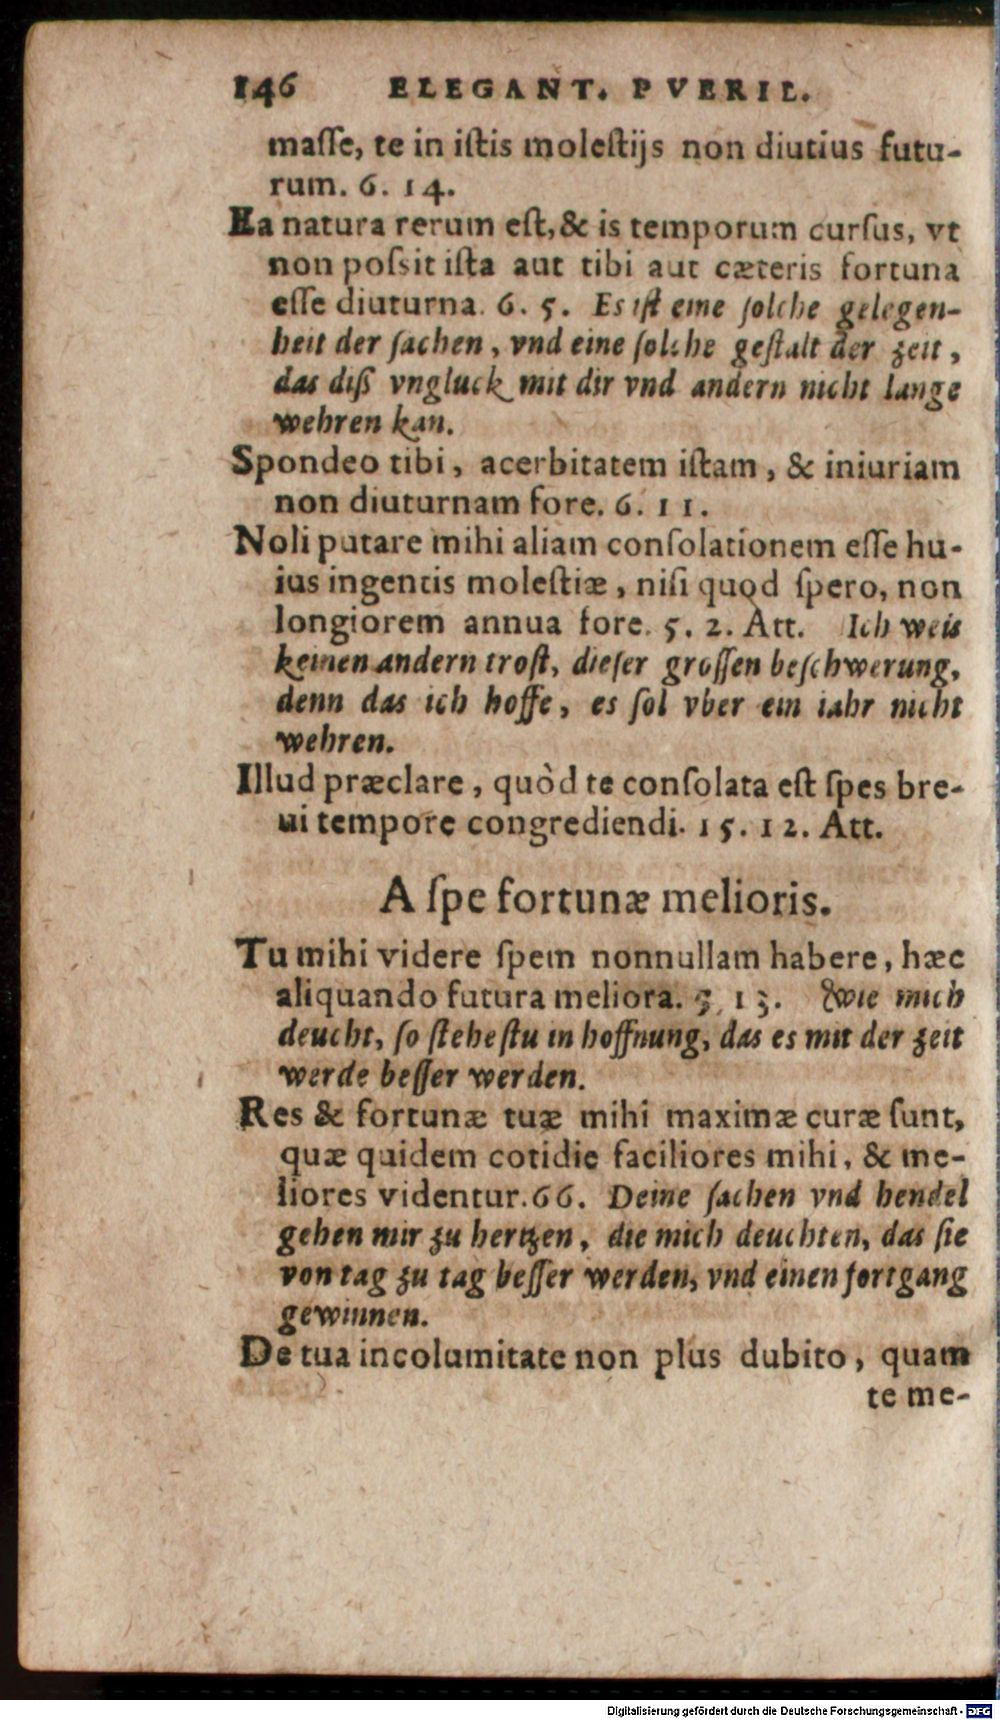 146 ELEGANT. PVERIL.
masse, te in istis molestijs non diutius futu-
rum. 6. 14.
Ea natura rerum est, & is temporum cursus, vt
non possit ista aut tibi aut cæteris fortuna
esse diuturna. 6. 5. Es ist eine solche gelegen-
heit der sachen, vnd eine solche gestalt der zeit,
das diß vngluck mit dir vnd andern nicht lange
wehren kan.
Spondeo tibi, acerbitatem istam, & iniuriam
non diuturnam fore. 6. 11.
Noli putare mihi aliam consolationem esse hu-
ius ingentis molestiæ, nisi quod spero, non
longiorem annua fore. 5. 2. Att. Ich weis
keinen andern trost, dieser grossen beschwerung,
denn das ich hoffe, es sol vber ein iahr nicht
wehren.
Illud præclare, quòd te consolata est spes bre-
ui tempore congrediendi. 15. 12. Att.
A spe fortunæ melioris.
Tu mihi videre spem nonnullam habere, hæc
aliquando futura meliora. 3, 13. Wie mich
deucht, so stehestu in hoffnung, das es mit der zeit
werde besser werden.
Res & fortunæ tuæ mihi maximæ curæ sunt,
quæ quidem cotidie faciliores mihi, & me-
liores videntur. 66. Deine sachen vnd hendel
gehen mir zu hertzen, die mich deuchten, das sie
von tag zu tag besser werden, vnd einen fortgang
gewinnen.
De tua incolumitate non plus dubito, quam
te me-
Digitalisierung gefördert durch die Deutsche Forschungsgemeinschaft - DFG